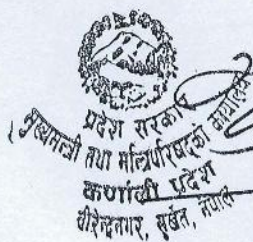 प्रदेश सरकार
मुख्यमन्त्री तथा मन्त्रिपरिषदको कार्यालय
कर्णाली प्रदेश
वीरेन्द्रनगर, सुर्खेत, नेपाल